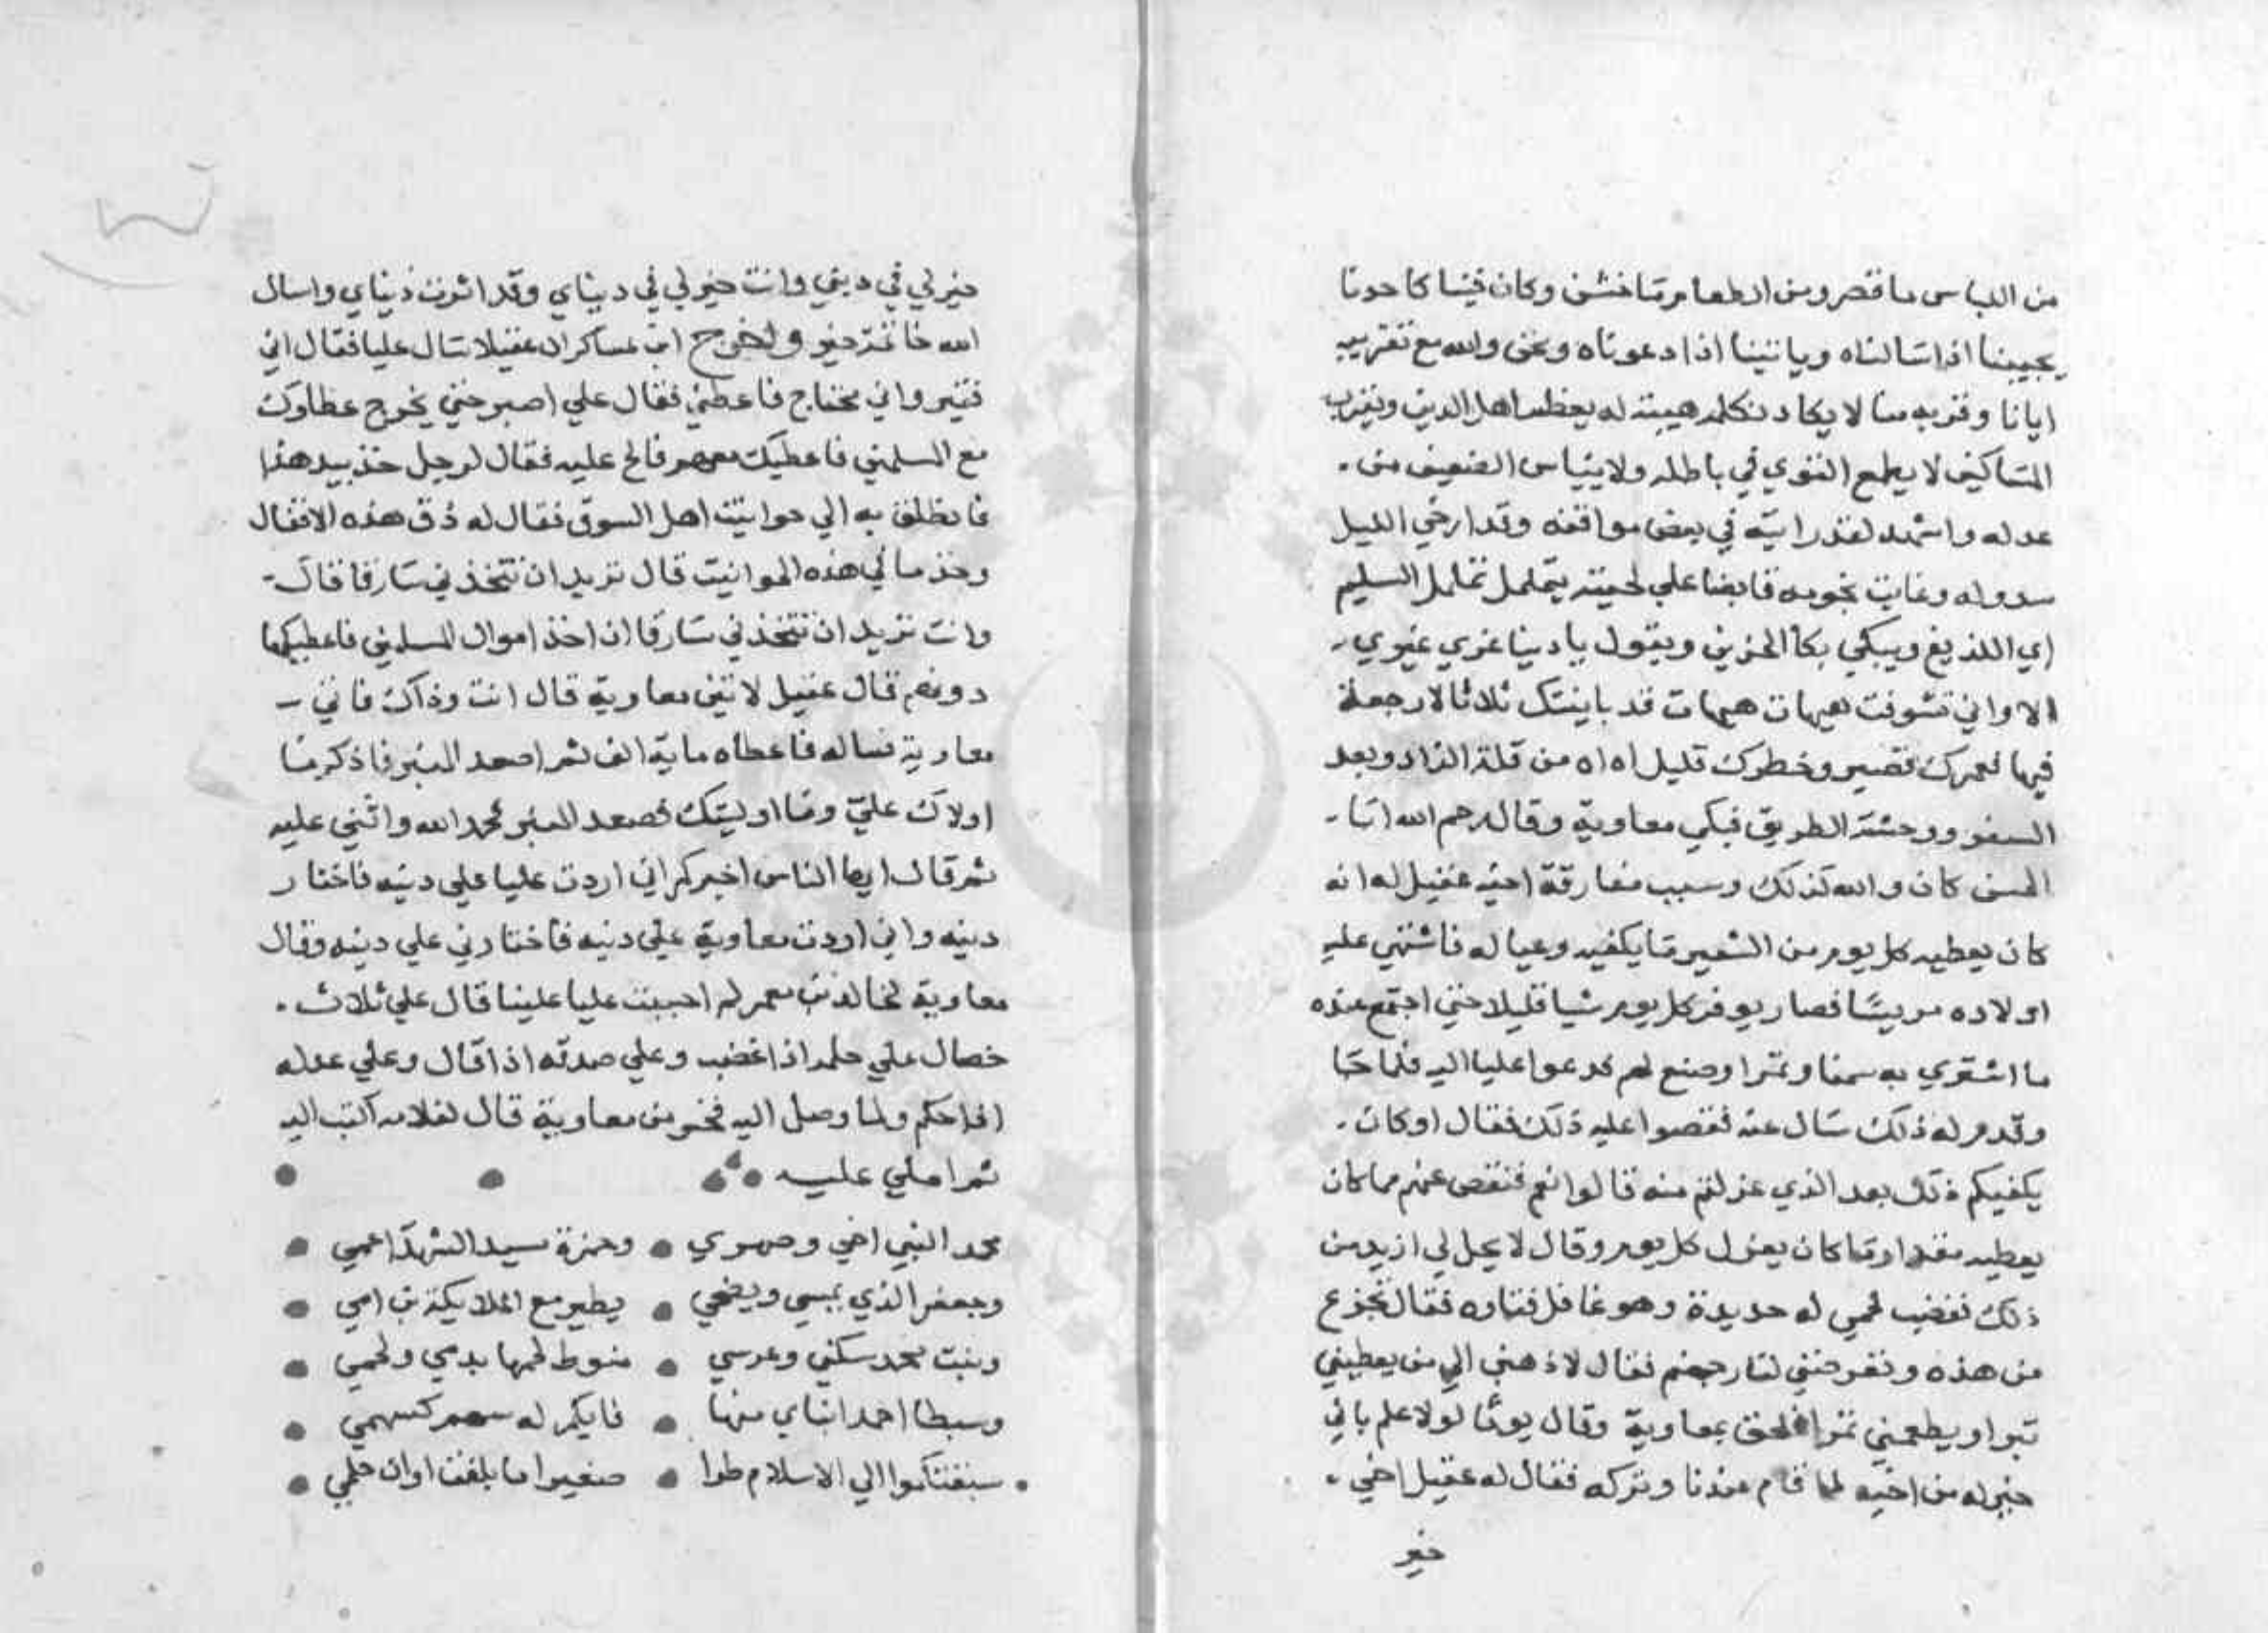 من اللباس ما قصر ومن الطعام ما خشن وكان فينا كاحدنا
يجيبنا اذا سالناه وياتينا اذا دعوناه ونحن والله مع تقريبه
ايانا وقربه منا لا يكاد نكلمه هيبة له يعظم اهل الدين ويقرب
المساكين لا يطمع القوي في باطله ولا يياس الضعيف من
عدله واشهد لقد رايته في بعض مواقفه وقد ارخي الليل
سدوله وغابت نجومه قابضا علي لحيته يتململ تململ السليم
اي اللديغ ويبكي بكا الحزين ويقول يا دنيا غري غيري
الا واني تشوفت هيهات هيهات قد باينتك ثلاثا لا رجعة
فيها فعمرك قصير وخطرك قليل اه اه من قلة الزاد وبعد
السفر ووحشة الطريق فبكي معاوية وقال رحم الله ابا
الحسن كان والله كذلك وسبب مفارقة اخيه عقيل له انه
كان يعطيه كل يوم من الشعير ما يكفيه وعياله فاشتهي عليه
اولاده مريسا فصار يوفر كل يوم شيا قليلا حتي اجتمع عنده
ما اشتري به سمنا وتمرا وصنع لهم فدعوا عليا اليه فلما جا
وقدم له ذلك سال عنه فقصوا عليه ذلك فقال اوكان
يكفيكم ذلك بعد الذي عزلتم منه قالوا نعم فنقص عنهم مما كان
يعطيه مقدار ما كان يعزل كل يوم وقال لا يحل لي ازيد من
ذلك فغضب فحمي له حديدة وهو غافل فتاوه فقال تجزع
من هذه وتعرضني لنار جهنم فقال لاذهبن الي من يعطيني
تبرا ويطعمني تمرا فلحق بمعاوية وقال يوما لولا علم باني
خير له من اخيه لما قام عندنا وتركه فقال له عقيل اخي
خير
خير لي في ديني وانت خير لي في دنياي وقد اثرت دنياي واسال
الله خاتمة خير واخرج ابن عساكر ان عقيلا سال عليا فقال اني
فقير واني محتاج فاعطني فقال علي اصبر حتي يخرج عطاوك
مع المسلمين فاعطيك معهم فالح عليه فقال لرجل خذ بيد هذا
فانطلق به الي حوانيت اهل السوق فقال له دق هذه الاقفال
وخذ ما في هذه الحوانيت قال تريد ان تتخذني سارقا قال
وانت تريد ان تتخذني سارقا ان اخذ اموال المسلمين فاعطيكها
دونهم قال عقيل لاتين معاوية قال انت وذاك فاتي
معاوية فساله فاعطاه ماية الف ثم اصعد المنبر فاذكر ما
اولاك علي وما اوليتك فصعد المنبر فحمد الله واثني عليه
ثم قال ايها الناس اخبركم اني اردت عليا علي دينه فاختار
دينه واني اردت معاوية علي دينه فاختارني علي دينه وقال
معاوية لخالد بن معمر لم احببت عليا علينا قال علي ثلاث
خصال علي حلمه اذا غضب وعلي صدقه اذا قال وعلي عدله
اذا حكم ولما وصل اليه فخر من معاوية قال لغلامه اكتب اليه
ثم املي عليه
محمد النبي اخي وصهري • وحمزة سيد الشهدا عمي
وجعفر الذي يمسي ويضحي • يطير مع الملايكة بن امي
وبنت محمد سكني وعرسي • منوط لحمها بدمي ولحمي
وسبطا احمد ابناي منها • فايكم له سهم كسهمي
سبقتكموا الي الاسلام طرا • صغيرا ما بلغت اوان حلمي